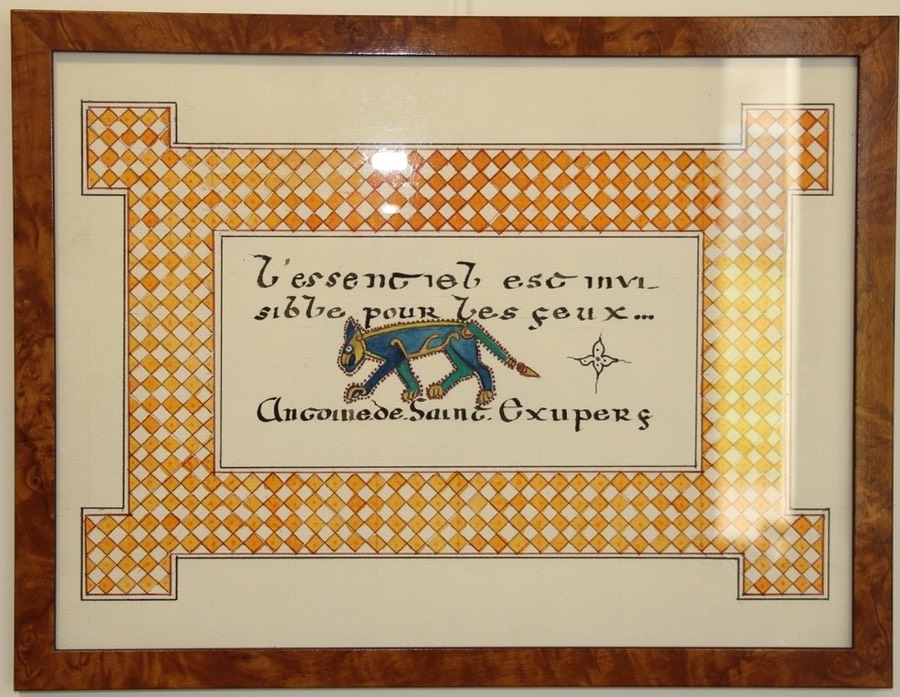 L'essentiel est invi_
sible pour les yeux...
Antoine.de.Saint.Exupery